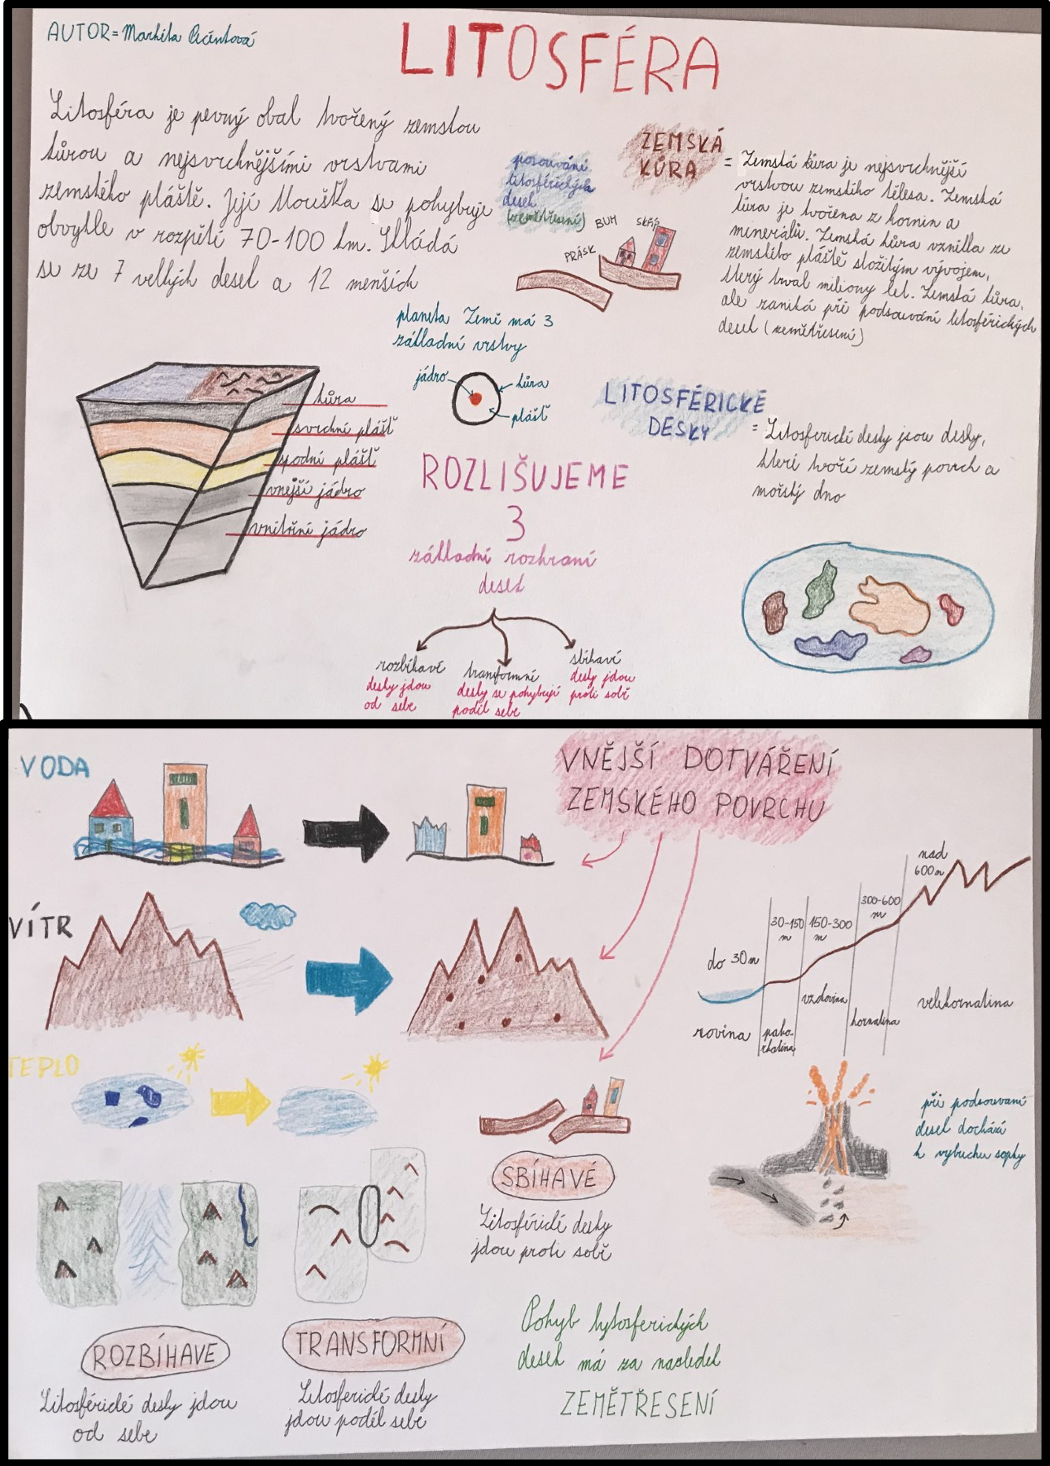 AUTOR = Markéta
LITOSFÉRA
Litosféra je pevný obal tvořený zemskou
kůrou a nejsvrchnějšími vrstvami
zemského pláště. Její tloušťka se pohybuje
obvykle v rozpětí 70-100 km. Skládá
se ze 7 velkých desek a 12 menších
posouvání
litosférických
desek
(zemětřesení)
PRÁSK
BUM
ZEMSKÁ
KŮRA
= Zemská kůra je nejsvrchnější
vrstvou zemského tělesa. Zemská
kůra je tvořena z hornin a
minerálů. Zemská kůra vznikla ze
zemského pláště složitým vývojem,
který trval miliony let. Zemská kůra,
ale zaniká při podsouvání litosférických
desek (zemětřesení)
planeta Země má 3
základní vrstvy
jádro
kůra
plášť
kůra
svrchní plášť
spodní plášť
vnější jádro
vnitřní jádro
LITOSFÉRICKÉ
DESKY
= Litosferické desky jsou desky,
které tvoří zemský povrch a
mořský dno
ROZLIŠUJEME
3
základní rozhraní
desek
rozbíhavé
desky jdou
od sebe
transformní
desky se pohybují
podél sebe
sbíhavé
desky jdou
proti sobě
VODA
VNĚJŠÍ DOTVÁŘENÍ
ZEMSKÉHO POVRCHU
VÍTR
TEPLO
do 30m
30-150
m
150-300
m
300-600
m
nad
600m
rovina
paho-
rkatina
vrchovina
hornatina
velehornatina
při podsouvání
desek dochází
k výbuchu sopky
SBÍHAVÉ
Litosférické desky
jdou proti sobě
ROZBÍHAVE
Litosférické desky jdou
od sebe
TRANSFORMNÍ
Litosferické desky
jdou podél sebe
Pohyb lytosferických
desek má za následek
ZEMĚTŘESENÍ